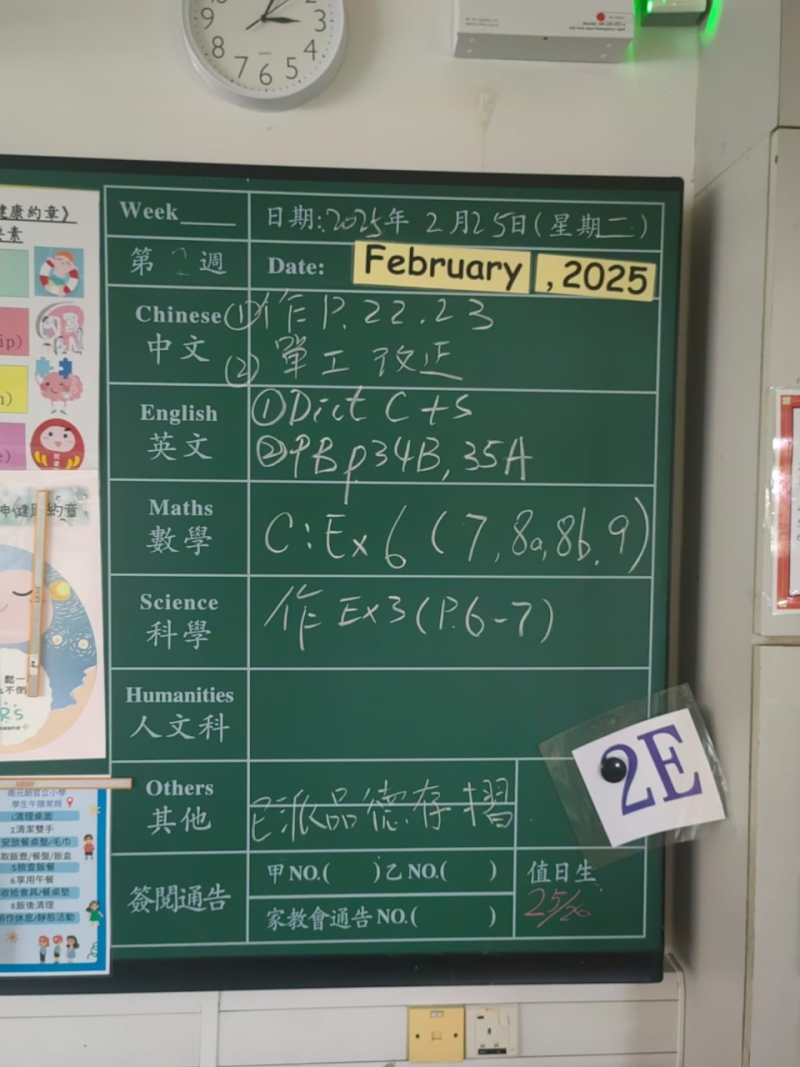 9 8 7 6 5 4 3 2
健康約章》
Week____ 日期:2025年 2月25日(星期二)
第 2 週 Date: February , 2025
Chinese ①作 P. 22.23
中文 ② 單工 改正
English ① Dict C+S
英文 ② PB p34B, 35A
Maths
數學 C: Ex 6 (7, 8a, 8b, 9)
Science
科學 作 Ex3 (P.6-7)
Humanities
人文科
2E
Others
其他 已派品德存摺
甲NO.( )乙NO.( ) 值日生
簽閱通告
家教會通告NO.( ) 25/26
南元朗官立小學
學生午膳常規
1清理桌面
2.清潔雙手
安放餐桌墊/毛巾
取飯壺/餐盤/飯盒
5檢查飯餐
6.享用午餐
收拾食具/餐桌墊
8.飯後清理
作休息/靜態活動